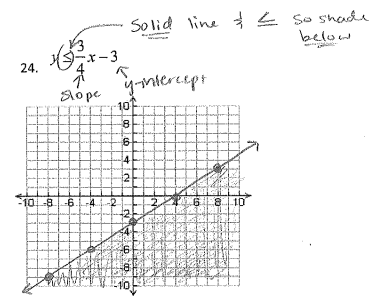 Solid line & ≤ so shade
below
24. y ≤ 3/4 x - 3
slope
y-intercept
10
8
6
4
2
-10 -8 -6 -4 -2 2 4 6 8 10
-2
-4
-6
-8
-10